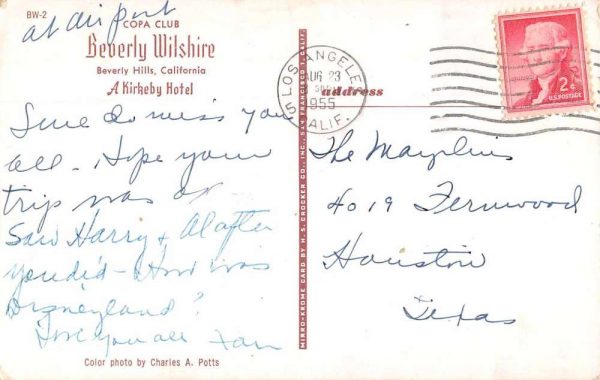 BW-2
at airport
COPA CLUB
Beverly Wilshire
Beverly Hills, California
A Kirkeby Hotel
Sure do miss you
all - Hope your
trip was
Saw Harry + Al after
you did - How was
Disneyland?
Love you all
Color photo by Charles A. Potts
MIRRO-KROME CARD BY H. S. CROCKER CO., INC., SAN FRANCISCO 1, CALIF.
LOS ANGELES
AUG 23
1955
CALIF.
5
address
2¢
U.S. POSTAGE
The
4019 Fernwood
Houston
Texas